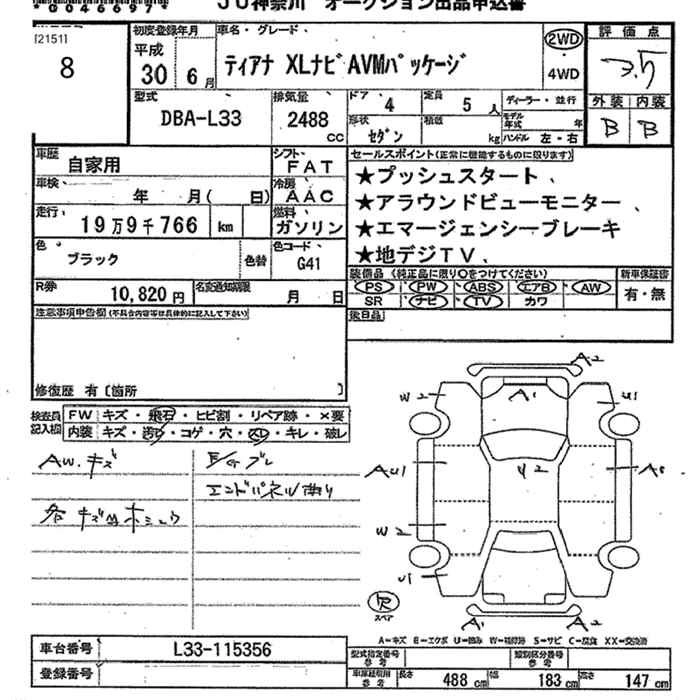 *0046697*
JU神奈川 オークション出品申込書
[2151]
8
初度登録年月
平成
30 6月
車名・グレード
ティアナ XLナビAVMパッケージ
2WD
4WD
評価点
3.5
外装 内装
B B
型式
DBA-L33
排気量
2488
cc
ドア 4
定員 5 人
形状
セダン
積載
kg
ディーラー・並行
モデル年式 年
ハンドル 左・右
車歴
自家用
シフト
FAT
車検
年 月( 日)
冷房
AAC
走行
19万9千766 km
燃料
ガソリン
色
ブラック
色替
色コード
G41
R券
10,820円
名変通知期限
月 日
セールスポイント(正常に機能するものに限ります)
★プッシュスタート、
★アラウンドビューモニター、
★エマージェンシーブレーキ
★地デジTV、
装備品(純正品に限り○をつけてください)
PS PW ABS エアB AW
SR ナビ TV カワ
新車保証書
有・無
後日品
注意事項申告欄(不具合内容等は具体的に記入して下さい)
修復歴 有〔箇所 〕
検査員記入欄
FW キズ・飛石・ヒビ割・リペア跡・×要
内装 キズ・汚れ・コゲ・穴・スレ・キレ・破レ
AW.キズ
E/Gブレ
エンドパネル曲り
各キズ凹
A2
W2
A1
U1
AU1
Y2
W2
U1
A1
A2
スペア
A=キズ E=エクボ U=凹み W=補修跡 S=サビ C=腐食 XX=交換済
車台番号
L33-115356
登録番号
型式指定番号
参考
類別区分番号
参考
車庫証明用
参考
長さ 488cm
幅 183cm
高さ 147cm